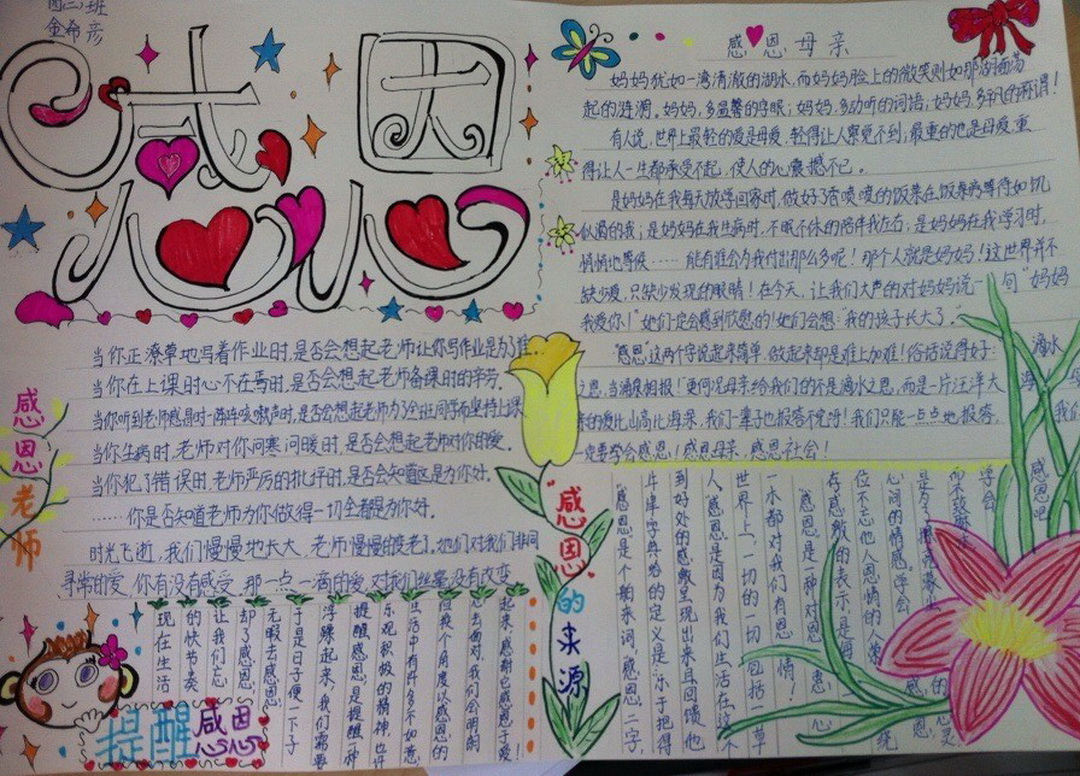 四(二)班
金希彦
感恩
感恩母亲
妈妈犹如一湾清澈的湖水,而妈妈脸上的微笑则如那湖面荡
起的涟漪。妈妈,多温馨的字眼;妈妈,多动听的词语;妈妈,多平凡的称谓!
有人说,世界上最轻的爱是母爱,轻得让人察觉不到;最重的也是母爱,重
得让人一生都承受不起,使人的心震撼不已。
是妈妈在我每天放学回家时,做好了香喷喷的饭来在饭桌旁等待如饥
似渴的我;是妈妈在我生病时,不眠不休的陪伴我左右;是妈妈在我学习时,
悄悄地等候……能有谁会为我付出那么多呢!那个人就是妈妈!这世界并不
缺少爱,只缺少发现的眼睛!在今天,让我们大声的对妈妈说一句"妈妈
我爱你!"她们一定会感到欣慰的!她们会想:"我的孩子长大了。"
"感恩"这两个字说起来简单,做起来却是难上加难!俗话说得好:滴水
之恩,当涌泉相报!更何况母亲给我们的不是滴水之恩,而是一片汪洋大海
的爱比山高比海深,我们一辈子也报答不完呀!我们只能一点点地报答,我们
一定要学会感恩!感恩母亲,感恩社会!
感恩老师
当你正潦草地写着作业时,是否会想起老师让你写作业是为了谁…
当你在上课时心不在焉时,是否会想起老师备课时的辛劳。
当你听到老师感冒时一阵阵咳嗽声时,是否会想起老师为了全班同学而坚持上课。
当你生病时,老师对你问寒问暖时,是否会想起老师对你的爱。
当你犯了错误时,老师严厉的批评时,是否会知道这是为你好。
……你是否知道老师为你做得一切全都是为你好。
时光飞逝,我们慢慢地长大,老师慢慢的变老了。她们对我们非同
寻常的爱,你有没有感受,那一点一滴的爱,对我们丝毫没有改变
提醒感恩
现在生活
的快节奏
让我们忘
却了感恩,
无暇去感恩,
于是日子便一下子
浮躁起来,我们需要
提醒感恩,是提醒一种
乐观积极的精神,也许
生活中有许多不如意,
但换个角度以感恩的
心去面对,我们会明朗
起来,感谢它感恩于爱!
"感恩"的来源
"感恩"是个舶来词,"感恩"二字,
牛津字典给的定义是:"乐于把得
到好处的感激呈现出来且回馈他
人。"感恩"是因为我们生活在这个
世界上,一切的一切,包括一草
一木都对我们有恩情!
"感恩"是一种对恩惠心
存感激的表示,是每一
位不忘他人恩情的人萦绕
心间的情感。学会感恩,
学会
感恩吧